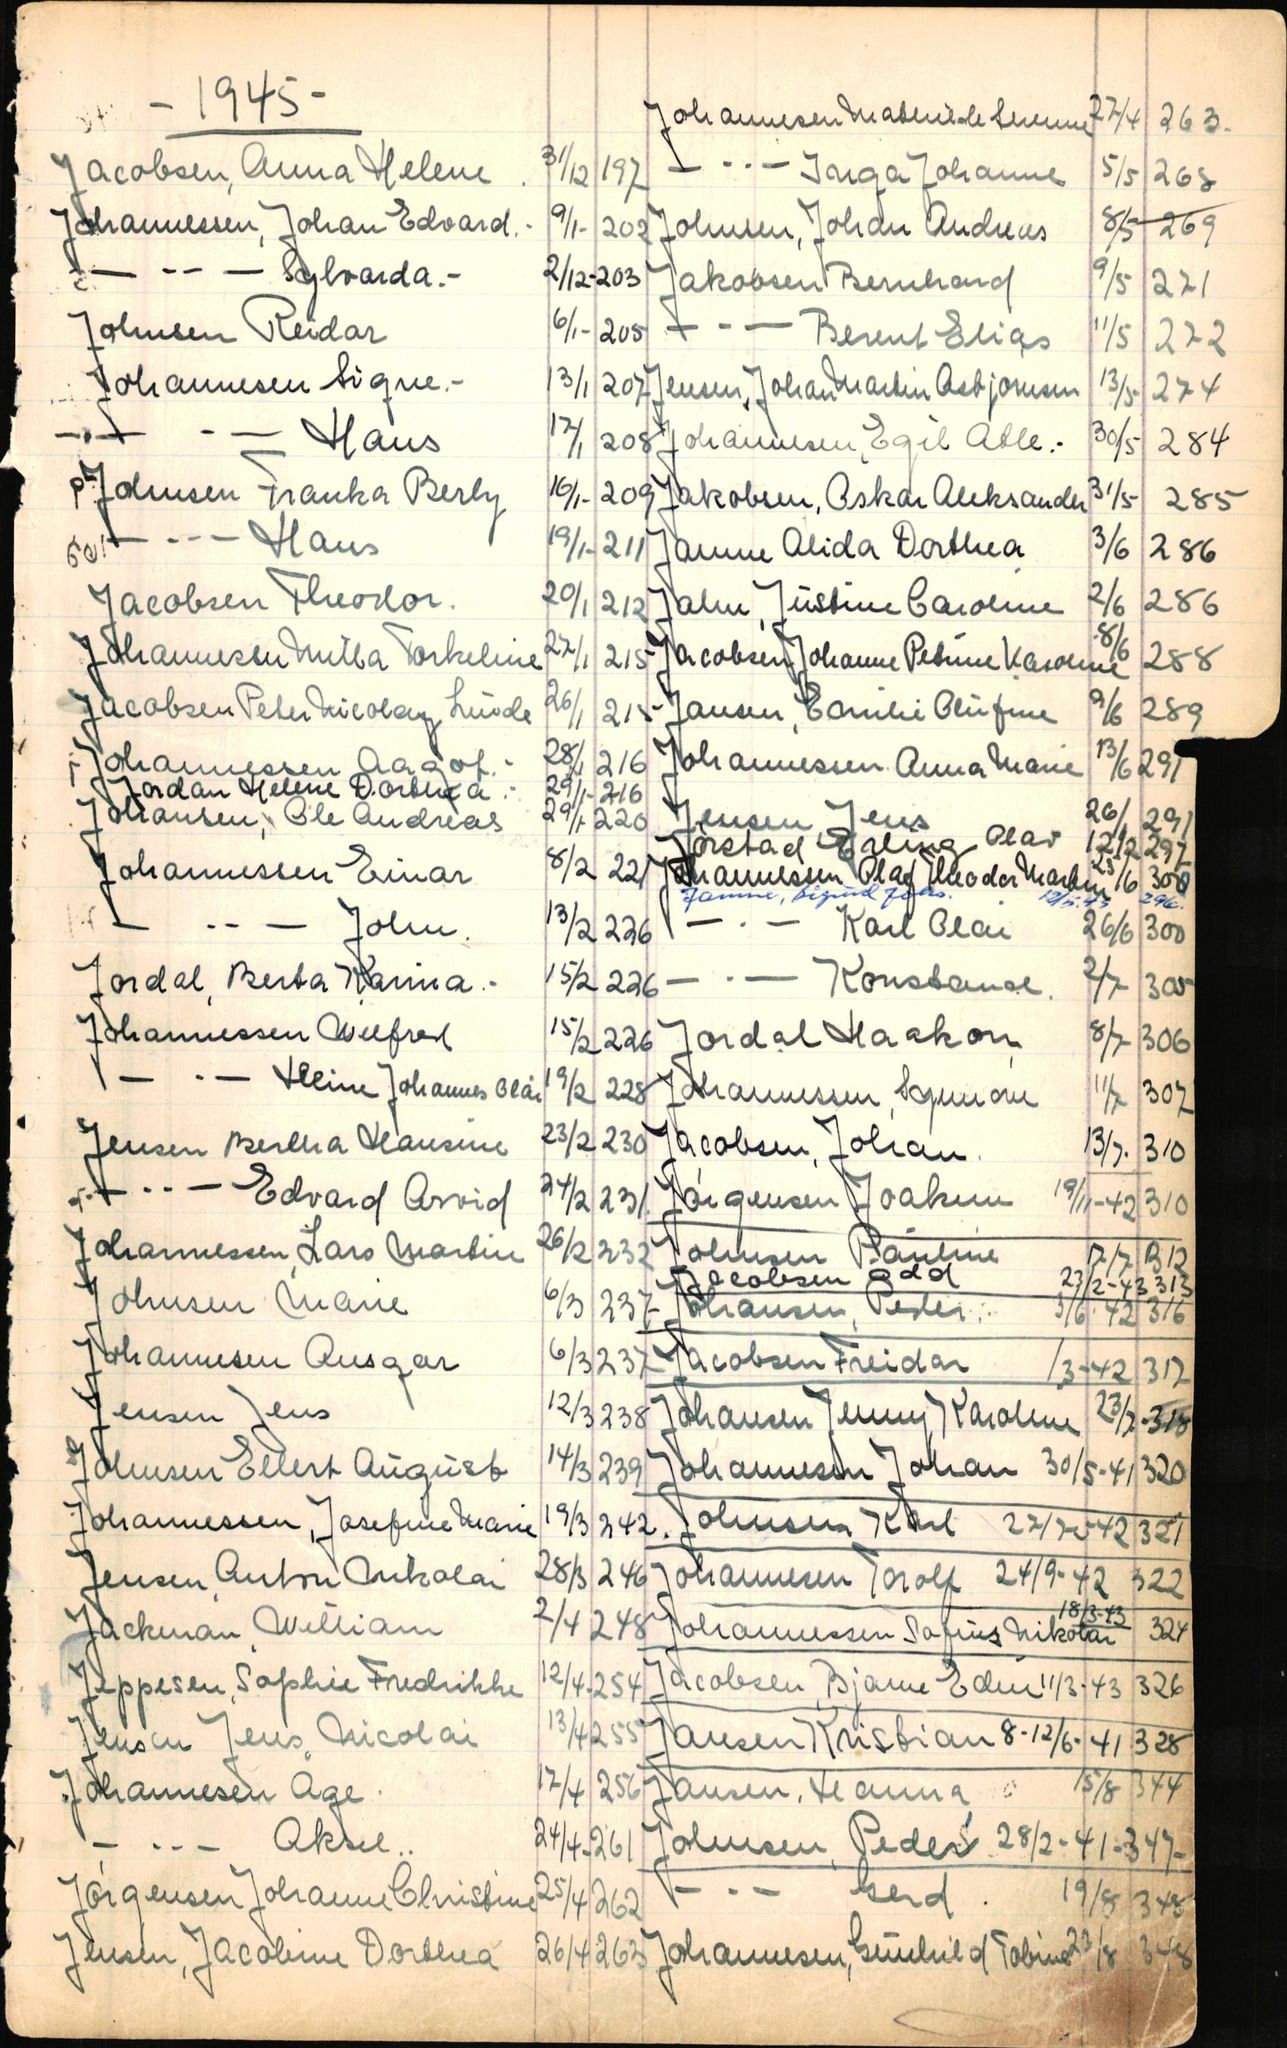 - 1945 -
Jacobsen, Anna Helene. 31/12 197
Johannessen, Johan Edvard.- 9/1- 202
— -- — Sylvarda.- 2/12-203
Johnsen Reidar 6/1- 205
Johannesen Signe.- 13/1 207
— -- — Hans 17/1 208
Johnsen Franka Berly 16/1- 209
— -- — Hans 19/1- 211
Jacobsen Theodor. 20/1 212
Johannesen Milla Torkeline 27/1 215
Jacobsen Peter Nicolay Lunde 26/1 215
Johannessen Aagot.- 28/1 216
Jordan Helene Dorthea.- 29/1- 216
Johansen, Ole Andreas 29/1 220
Johannessen Einar 8/2 221
— -- — John. 13/2 226
Jordal, Berta Karina.- 15/2 226
Johannessen Wilfred 15/2 226
— -- — Heine Johannes Olai 19/2 228
Jensen Bertha Hansine 23/2 230
— -- — Edvard Arvid 24/2 231
Johannessen, Lars Martin 26/2 232
Johnsen Marie 6/3 237
Johannesen Ansgar 6/3 237
Jensen Jens 12/3 238
Johnsen Ellert August 14/3 239
Johannessen, Josefine Marie 19/3 242.
Jensen, Anton Nikolai 28/3 246
Jackman, William 2/4 248
Jeppesen, Sophie Fredrikke 12/4-254
Jensen Jens, Nicolai 13/4 255
Johannesen Age. 17/4 256
— -- — Aksel.. 24/4-261
Jörgensen Johanne Christine 25/4 262
Jensen, Jacobine Dorthea 26/4 263
Johannesen 27/4 263.
— -- — Inga Johanne 5/5 268
Johnsen, Johan Andreas 8/5 269
Jakobsen Bernhard 9/5 271
— -- — Berent Elias 11/5 272
Jensen, Johan Martin Asbjornsen 13/5 274
Johannesen, Egil Atle.- 30/5 284
Jakobsen, Oskar Aleksander 31/5 285
Janne Alida Dorthea 3/6 286
Jahn, Justine Caroline 2/6 286
Jacobsen, Johanne Petrine Karoline 8/6 288
Jansen, Emilie Olufine 9/6 289
Johannessen Anna Marie 13/6 291
Jensen Jens 26/1 291
Jörstad Erling Olav 12/2 297
Johannessen Olaf Theodor Martin 23/6 300
Janne, Sigurd Johs. 296.
— -- — Karl Olai 26/6 300
— -- — Konstanse. 2/7 305
Jordal Haakon 8/7 306
Johannessen, 11/7 307
Jacobsen, Johan. 13/7. 310
Jörgensen Joakim 19/11-42 310
Johnsen Pauline 17/7 312
Jacobsen Odd 23/2-43 313
Johansen, Peder.. 3/6-42 316
Jacobsen Freidar 1/3-42 317
Johansen Jenny Karoline 23/7-318
Johannesen Johan 30/5-41 320
Johnsen Karl 27/7-42 321
Johannesen Torolf 24/9-42 322
Johannessen Sofus Nikolai 18/3-43 324
Jacobsen, Bjarne Edin 11/3-43 326
Jansen Kristian 8-12/6-41 328
Jansen, Hanna 15/8 344
Johnsen, Peder 28/2-41-347-
— -- — Gerd. 19/8 348
Johannesen, Gunhild Tobine 23/8 348